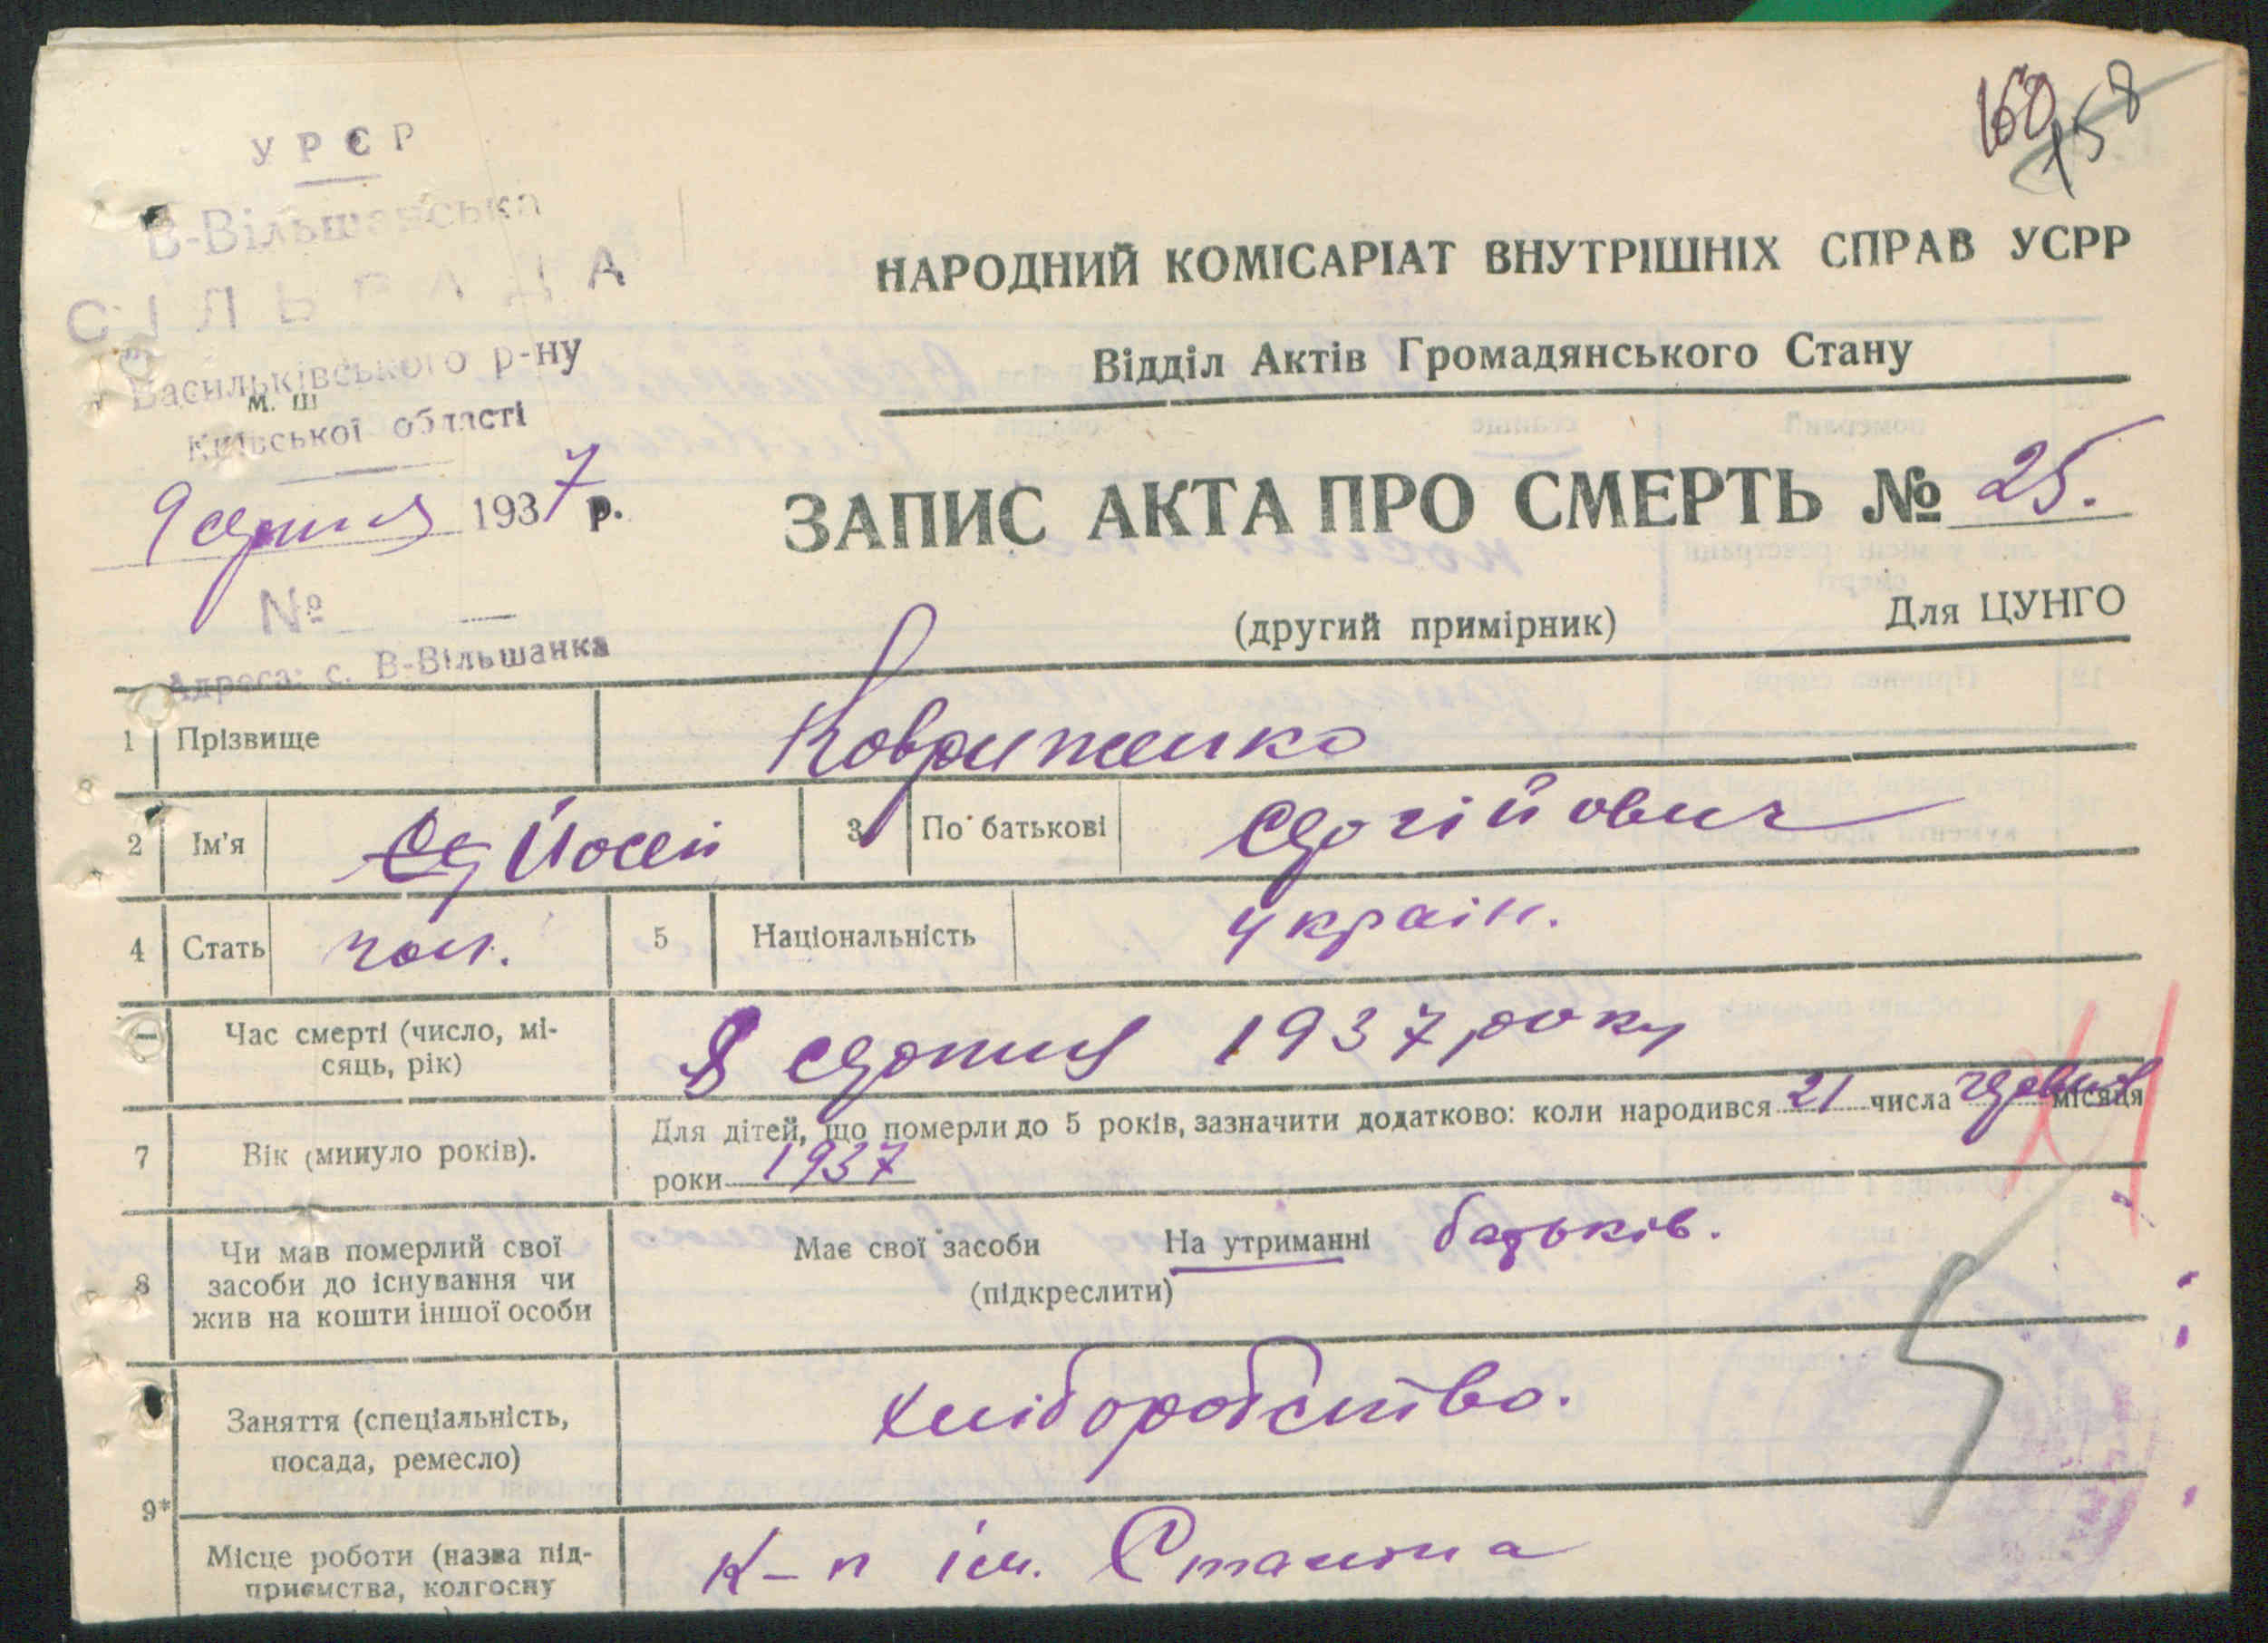 160
158
УРСР
В-Вільшанська
СІЛЬРАДА
Васильківського р-ну
м. ш
Київської області
9 серпня 1937 р.
№
Адреса: с. В-Вільшанка
НАРОДНИЙ КОМІСАРІАТ ВНУТРІШНІХ СПРАВ УСРР
Відділ Актів Громадянського Стану
ЗАПИС АКТА ПРО СМЕРТЬ № 25.
(другий примірник) Для ЦУНГО
1 Прізвище Коврипенко
2 Ім'я Йосип 3 По батькові Сергійович
4 Стать чол. 5 Національність україн.
Час смерті (число, мі-
сяць, рік)
8 серпня 1937 року
7 Вік (минуло років).
Для дітей, що померли до 5 років, зазначити додатково: коли народився 21 числа червня місяця
роки 1937
8 Чи мав померлий свої
засоби до існування чи
жив на кошти іншої особи
Має свої засоби На утриманні батьків.
(підкреслити)
9* Заняття (спеціальність,
посада, ремесло)
хліборобство.
Місце роботи (назва під-
приємства, колгоспу
К-п ім. Сталіна